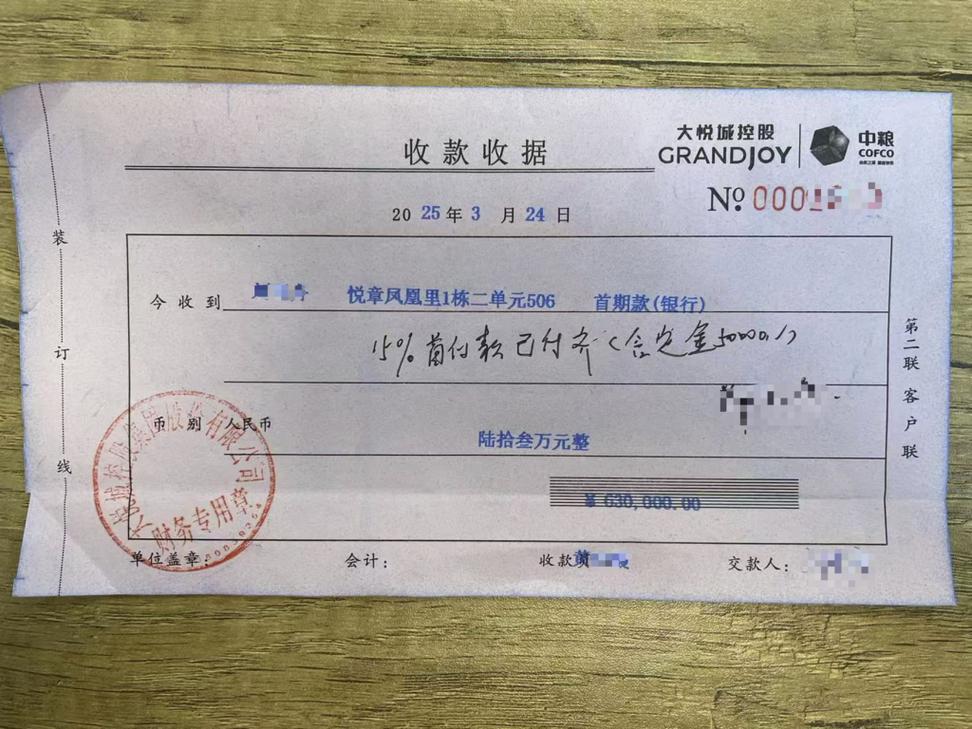 收款收据
大悦城控股
GRANDJOY
中粮
COFCO
№ 000
2025年3月24日
装订线
今收到 悦章凤凰里1栋二单元506 首期款(银行)
15%首付款已付齐(含定金50000.)
币别 人民币
陆拾叁万元整
¥ 630,000.00
大悦城控股集团股份有限公司
财务专用章
单位盖章:
会计:
收款 黄
交款人:
第二联 客户联